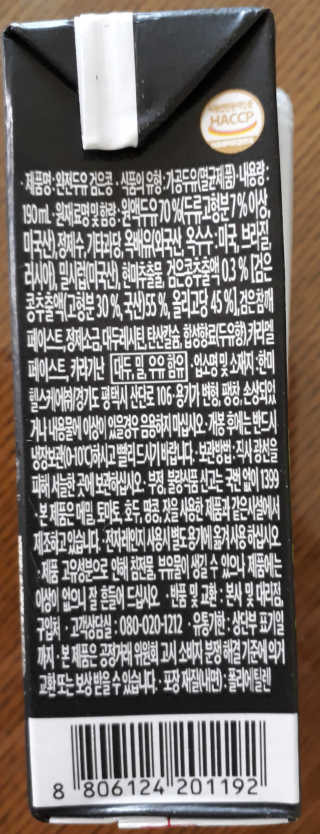 HACCP
·제품명:완전두유 검은콩 ·식품의 유형:가공두유(멸균제품)·내용량:
190ml ·원재료명 및 함량:원액두유 70 %(두류고형분 7% 이상,
미국산), 정제수, 기타과당, 옥배유(외국산, 옥수수:미국, 브라질,
러시아), 밀시럽(미국산), 현미추출물, 검은콩추출액 0.3 % [검은
콩추출액(고형분 30 %, 국산) 55 %, 올리고당 45 %], 검은참깨
페이스트, 정제소금, 대두레시틴, 탄산칼슘, 합성향료(두유향), 카라멜
페이스트, 카라기난 대두, 밀, 우유 함유 ·업소명 및 소재지:한미
헬스케어㈜/경기도 평택시 산단로 106 ·용기가 변형, 팽창, 손상되었
거나 내용물에 이상이 있을경우 음용하지 마십시오 ·개봉 후에는 반드시
냉장보관(0~10℃)하시고 빨리 드시기 바랍니다. ·보관방법:직사광선을
피해 서늘한 곳에 보관하십시오 ·부정, 불량식품 신고는 국번 없이 1399
·본 제품은 메밀, 토마토, 호두, 땅콩, 잣을 사용한 제품과 같은 시설에서
제조하고 있습니다. ·전자레인지 사용시 별도 용기에 옮겨 사용 하십시오
·제품 고유성분으로 인해 침전물, 부유물이 생길 수 있으나 제품에는
이상이 없으니 잘 흔들어 드십시오 ·반품 및 교환 : 본사 및 대리점,
구입처 ·고객상담실 : 080-020-1212 ·유통기한 : 상단부 표기일
까지 ·본 제품은 공정거래 위원회 고시 소비자 분쟁 해결 기준에 의거
교환 또는 보상 받을 수 있습니다. ·포장 재질(내면) : 폴리에틸렌
8 806124 201192